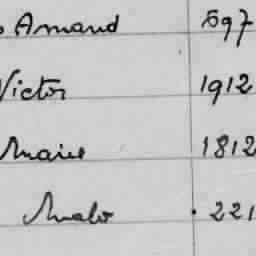 Amand 597
Victor 1912
Marie 1812
Malo 221